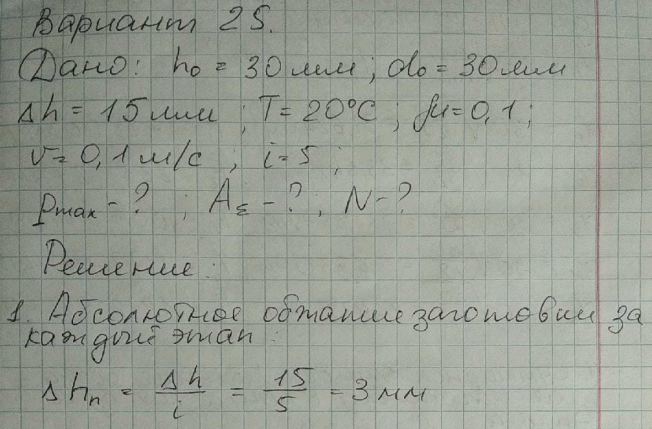 Вариант 25.
Дано: h₀ = 30 мм; d₀ = 30 мм
Δh = 15 мм; T = 20°C; μ = 0,1;
v = 0,1 м/с, i = 5;
Pmax - ?; A_Σ - ?; N - ?
Решение:
1. Абсолютное обжатие заготовки за
каждый этап:
Δhₙ = Δh / i = 15 / 5 = 3 мм